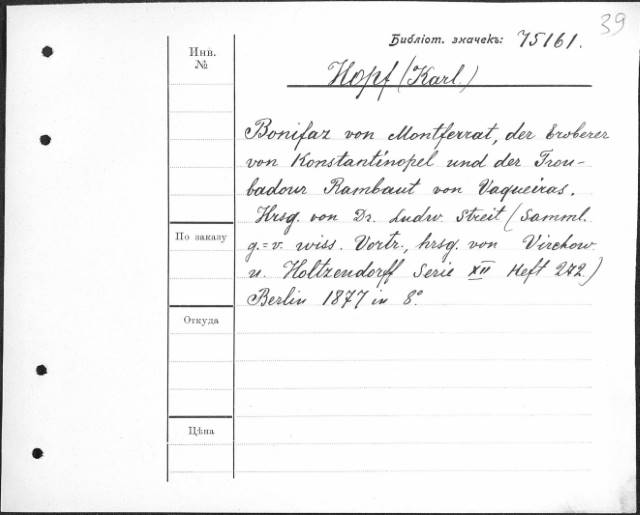 39
Библіот. значекъ: 75161.
Инв.
№
Hopf (Karl.)
Bonifaz von Montferrat, der Eroberer
von Konstantinopel und der Trou-
badour Rambaut von Vaqueiras.
Hrsg. von Dr. Ludw. Streit (Samml.
g.=v. wiss. Vortr., hrsg. von Virchow
u. Holtzendorff Serie XII Heft 272.)
Berlin 1877 in 8º.
По заказу
Откуда
Цѣна